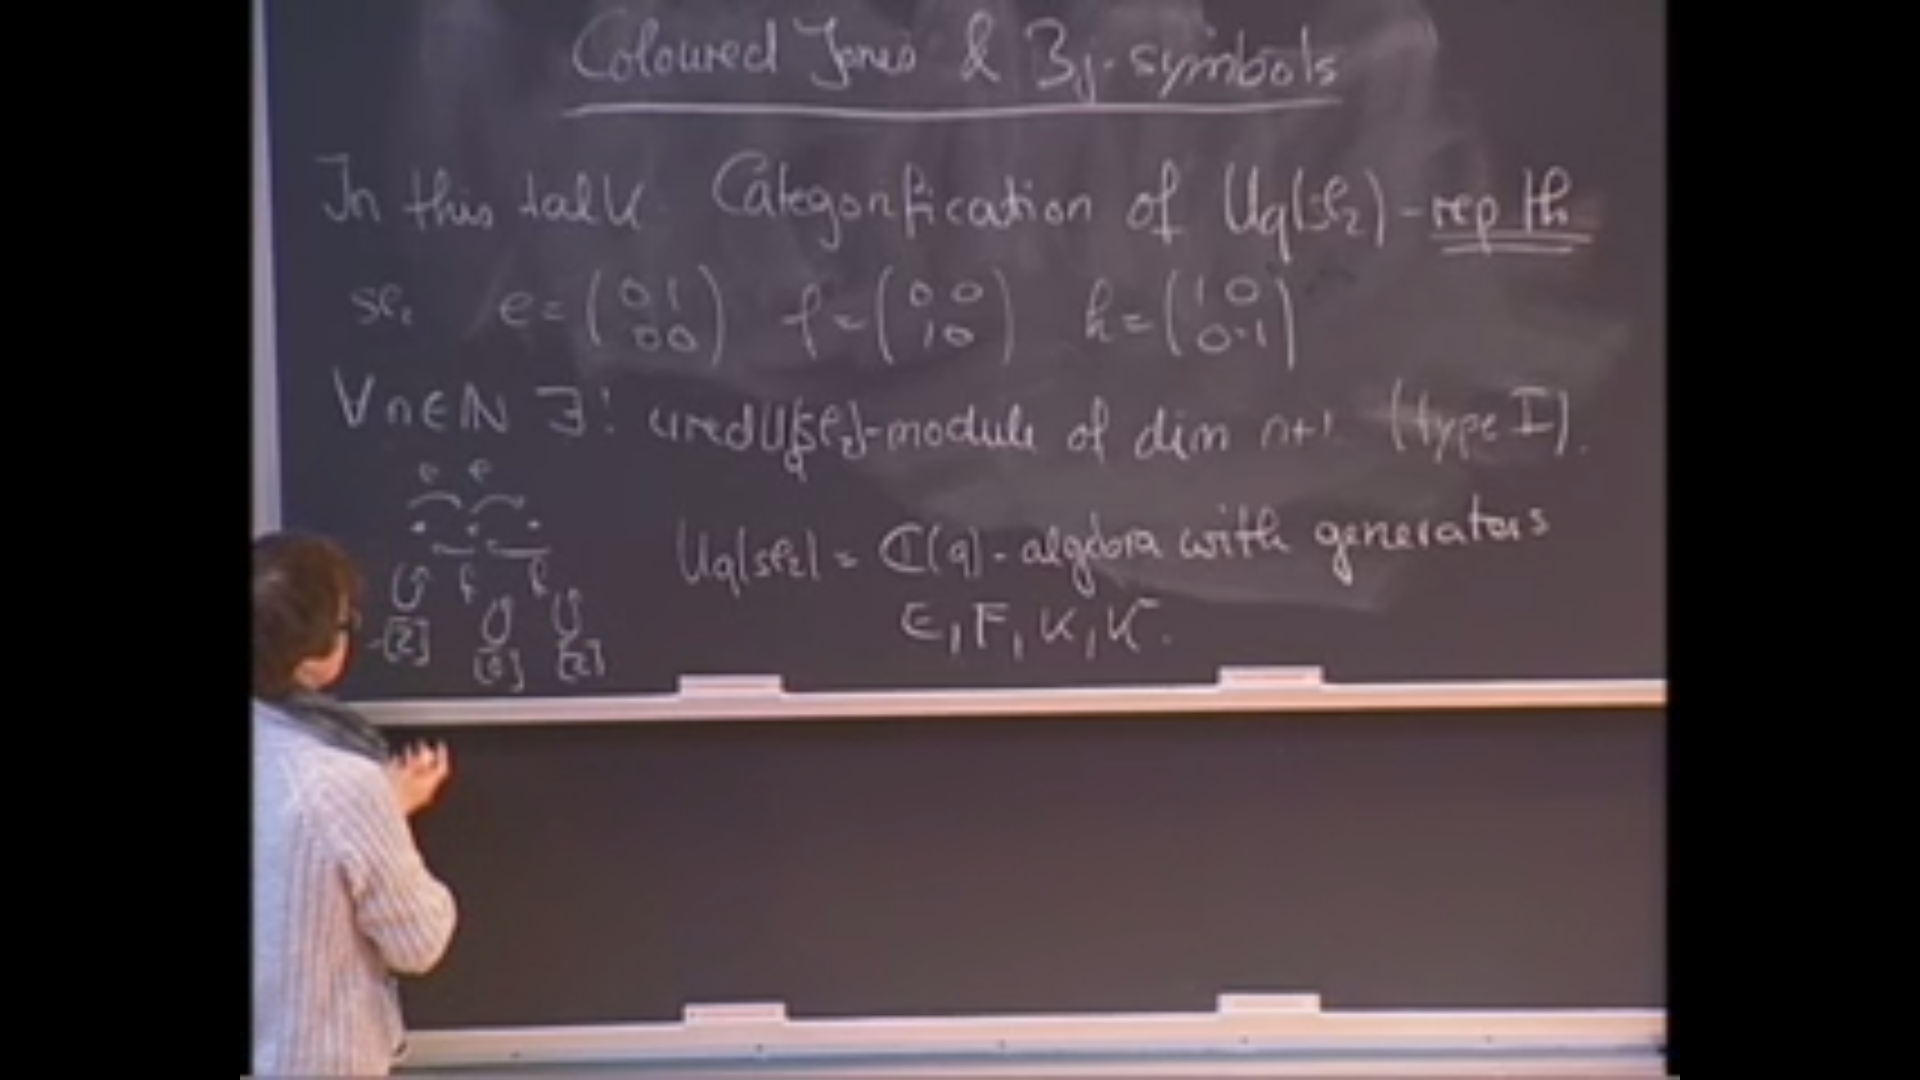 Coloured Jones & 3j-symbols
In this talk Categorification of Uq(sl₂)-rep th
sl₂ e = (0 1 / 0 0) f = (0 0 / 1 0) h = (1 0 / 0 -1)
∀ n ∈ ℕ ∃! irred Uq(sl₂)-module of dim n+1 (type I).
e e
f f
-[2] [0] [2]
Uq(sl₂) = ℂ(q)-algebra with generators
E, F, K, K⁻.